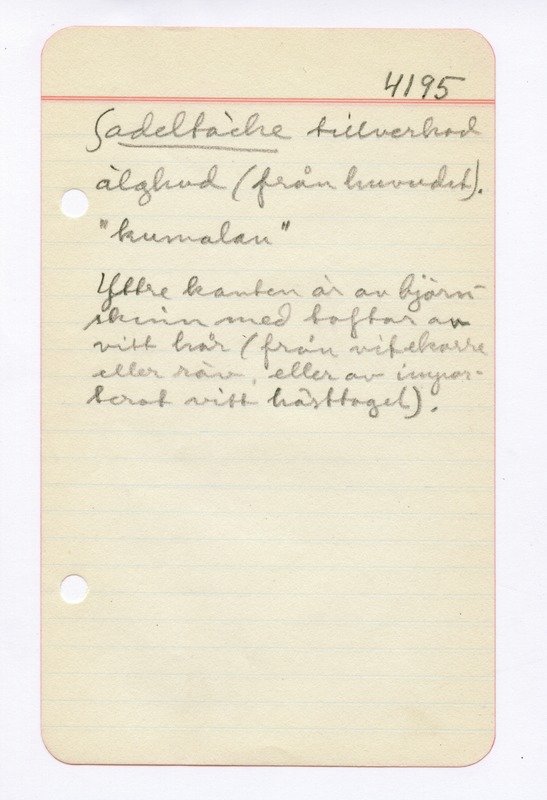 4195
Sadeltäcke tillverkad
älghud (från huvudet).
"kumalan"
Yttre kanten är av björn-
skinn med toftar av
vitt hår (från vit ekorre
eller räv, eller av impor-
terat vitt hästtagel).